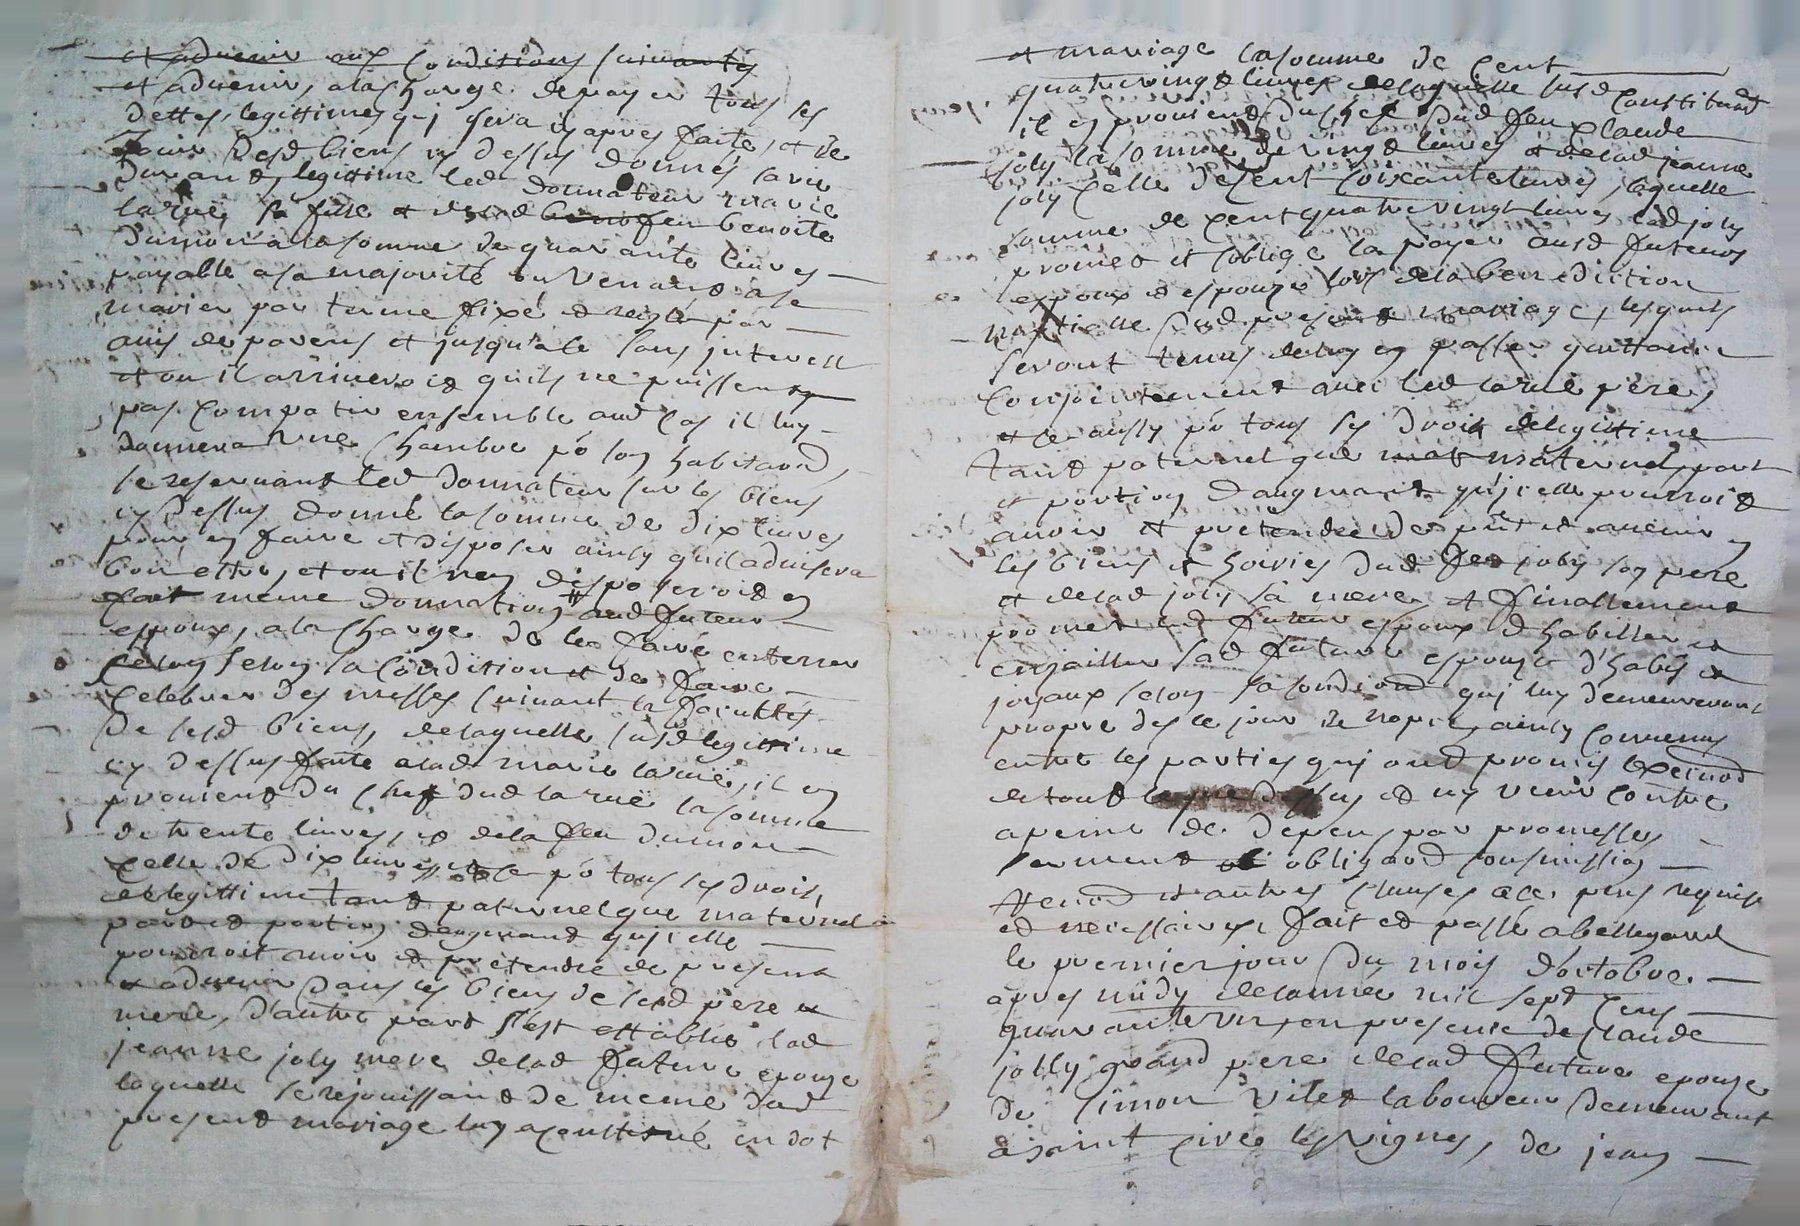 et advenir aux conditions suivantes
et advenir, a la charge de payer tous ses
dettes, legittimes qui sera cy apres faite, et de
jouir desd biens cy dessus donnés sa vie
durand, legittime led donnateur marie
larüe, sa fille et de lad feu benoite
dumon a la somme de quarante livres
payable a sa majorité ou venand a se
marier par terme fixé et reiglé par
avis de parens et jusqu'a ce sans interest
et ou il arriveroit quils ne puissent
pas compatir ensemble aud cas il luy
donnera une chambre po son habitaõn,
se reservant led donnateur sur les biens
cy dessus donné la somme de dix livres
pour en faire et disposer ainsy quil advisera
bon estre, et ou il nen disposeroit en
fait meme donnation aud futeur
espoux, a la charge de le faire enterrer
selon sa condition et de faire
celebrer des messes suivant la facultés
de sesd biens, de laquelle susd legittime
cy dessus faite a lad marie larüe, il en
provient du chef dud larüe la somme
de trente livres, et de la feu dumon
celle de dix livres et ce po tous ses drois
de legittime tant paternel que maternel
part et portion daugmand qu'icelle
pourroit avoir et pretendre de present
et advenir dans les biens de sesd père et
mere, d'autre part s'est establie lad
jeanne joly mere de lad future epouze
laquelle se rejouissant de meme dud
present mariage luy a constitué en dot
et mariage la somme de cent
quatrevingt livres de laquelle susd constitution
il en provient du chef dud feu claude
joly la somme de vingt livres et de lad jeanne
joly celle de cent soixante livres, laquelle
somme de cent quatre vingt livres lad joly
promet et soblige la payer ausd futeurs
espoux et espouze lors de la benediction
nuptielle dud present mariage, lesquels
seront tenus de luy en passer quittance
conjointement avec led larüe père,
et ce aussy po tous ses droits de legittime
tant paternel que maternel, part
et portion daugmant qu'icelle pourroit
avoir et pretendre de pñt et avenir en
les biens et hoiries dud feu joly son pere
et de lad joly sa mere et finallement
promet led futeur espoux d'habiller et
enjailler lad future espouze d'habis et
joyaux selon sa condition qui luy demeureront
propre des ce jour de nopce, ainsy convenus
entre les parties qui ont promis
de tout dessus et ny venir contre
a peine de depens, par promesses
serment obligaõn soumission
et autres clauses a ce plus requise
et necessaires, fait et passé a bellegard
le premier jour du mois d'octobre
apres midy de lannée mil sept cens
quarante un, en presence de claude
jolly grand pere de lad future epouze
de simon vilet laboureur demeurant
a saint cire les vignes, de jean